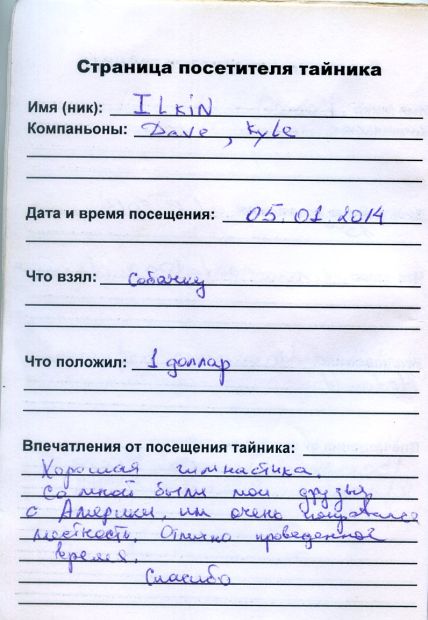 Страница посетителя тайника
Имя (ник): ILKIN
Компаньоны: Dave, Kyle
Дата и время посещения: 05.01.2014
Что взял: собачку
Что положил: 1 доллар
Впечатления от посещения тайника:
Хорошая гимнастика.
Со мной были мои друзья
с Америки, им очень понравилась
местность. Отлично проведенное
время.
Спасибо